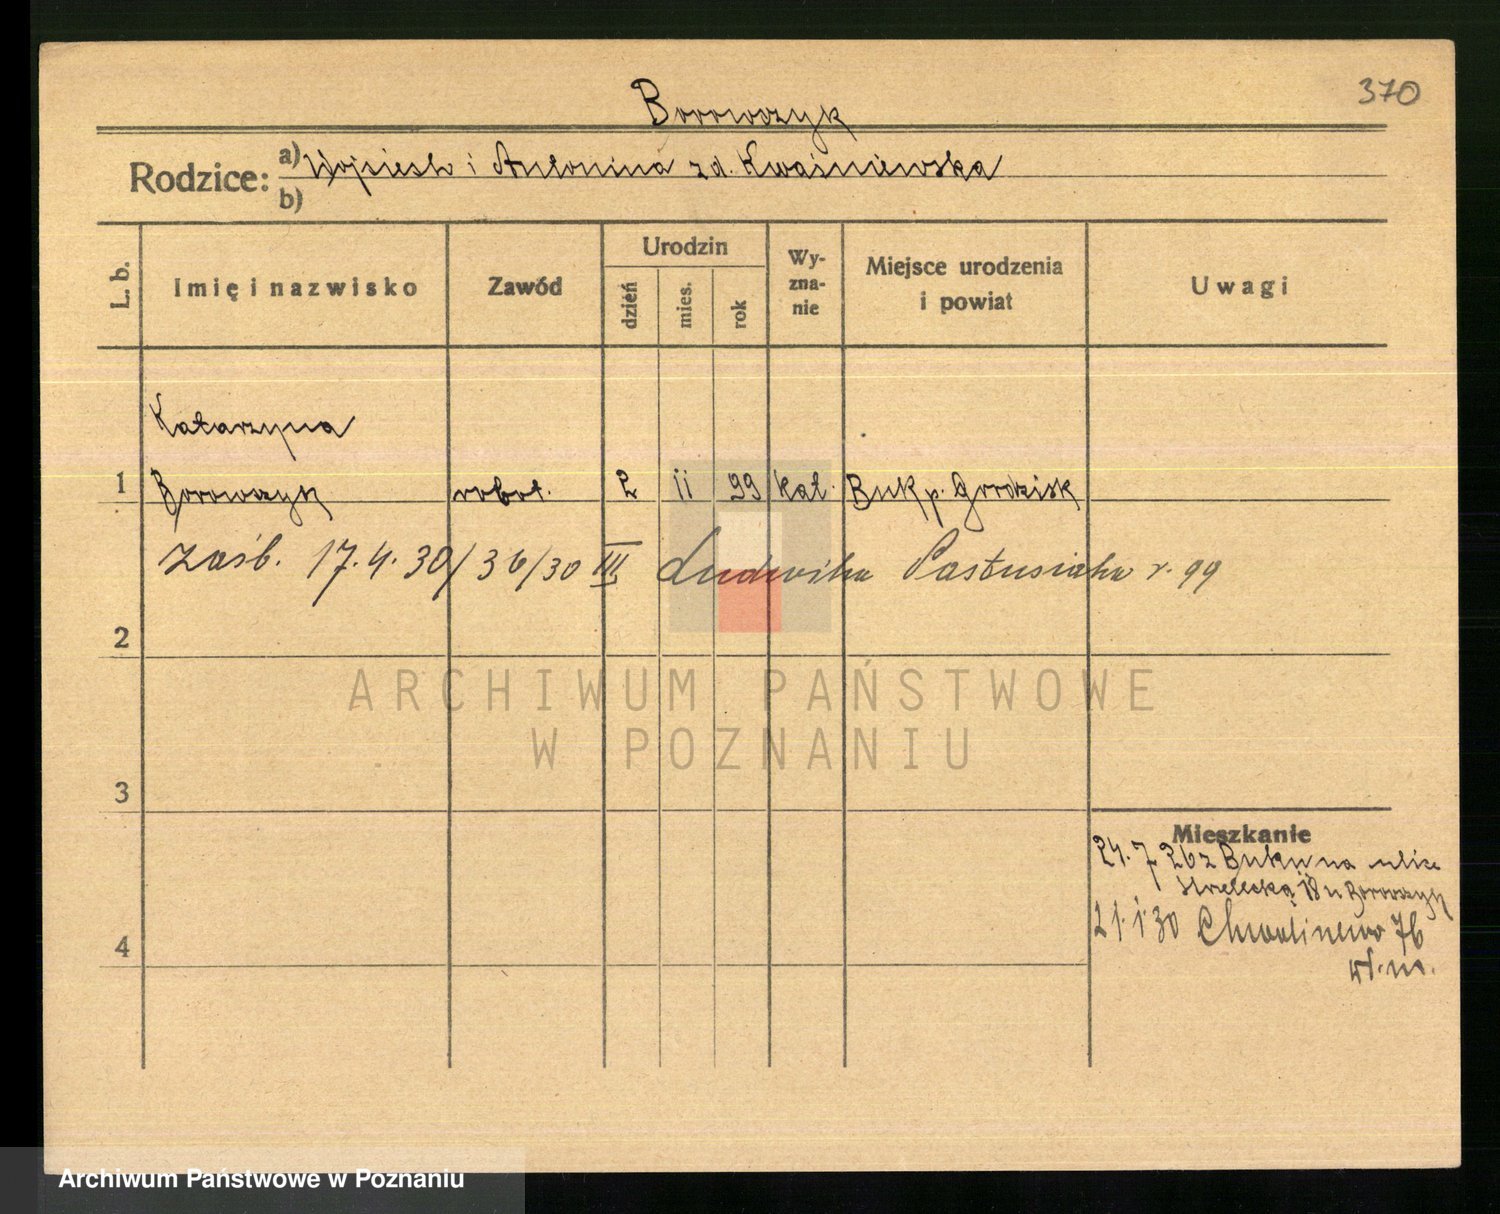 370
Borowczyk
Rodzice: a) Wojciech i Antonina z d. Kwaśniewska
b)
L. b.
Imię i nazwisko
Zawód
Urodzin
dzień
mies.
rok
Wy-
zna-
nie
Miejsce urodzenia
i powiat
Uwagi
Katarzyna
1 Borowczyk robot. 2 II 99 kat. Buk p. Grodzisk
zaśb. 17.4.30/36/30 III Ludwika Pastusiaka r. 99
2
ARCHIWUM PAŃSTWOWE
W POZNANIU
3
Mieszkanie
24.7 26 z Buku na ulicę
Strzelecką 18 u Borowczyk
21.1.30 Chwalinewo 76
4
wł. m.
Archiwum Państwowe w Poznaniu